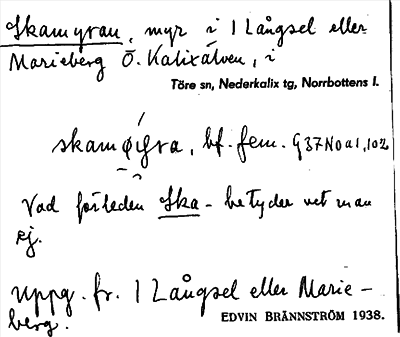 Skamyran, myr i 1 Långsel eller
Marieberg Ö. Kalixälven, i
Töre sn, Nederkalix tg, Norrbottens l.
bf. fem. G37N0a1,102
Vad förleden Ska- betyder vet man
ej.
Uppg. fr. 1 Långsel eller Marie-
berg.
EDVIN BRÄNNSTRÖM 1938.